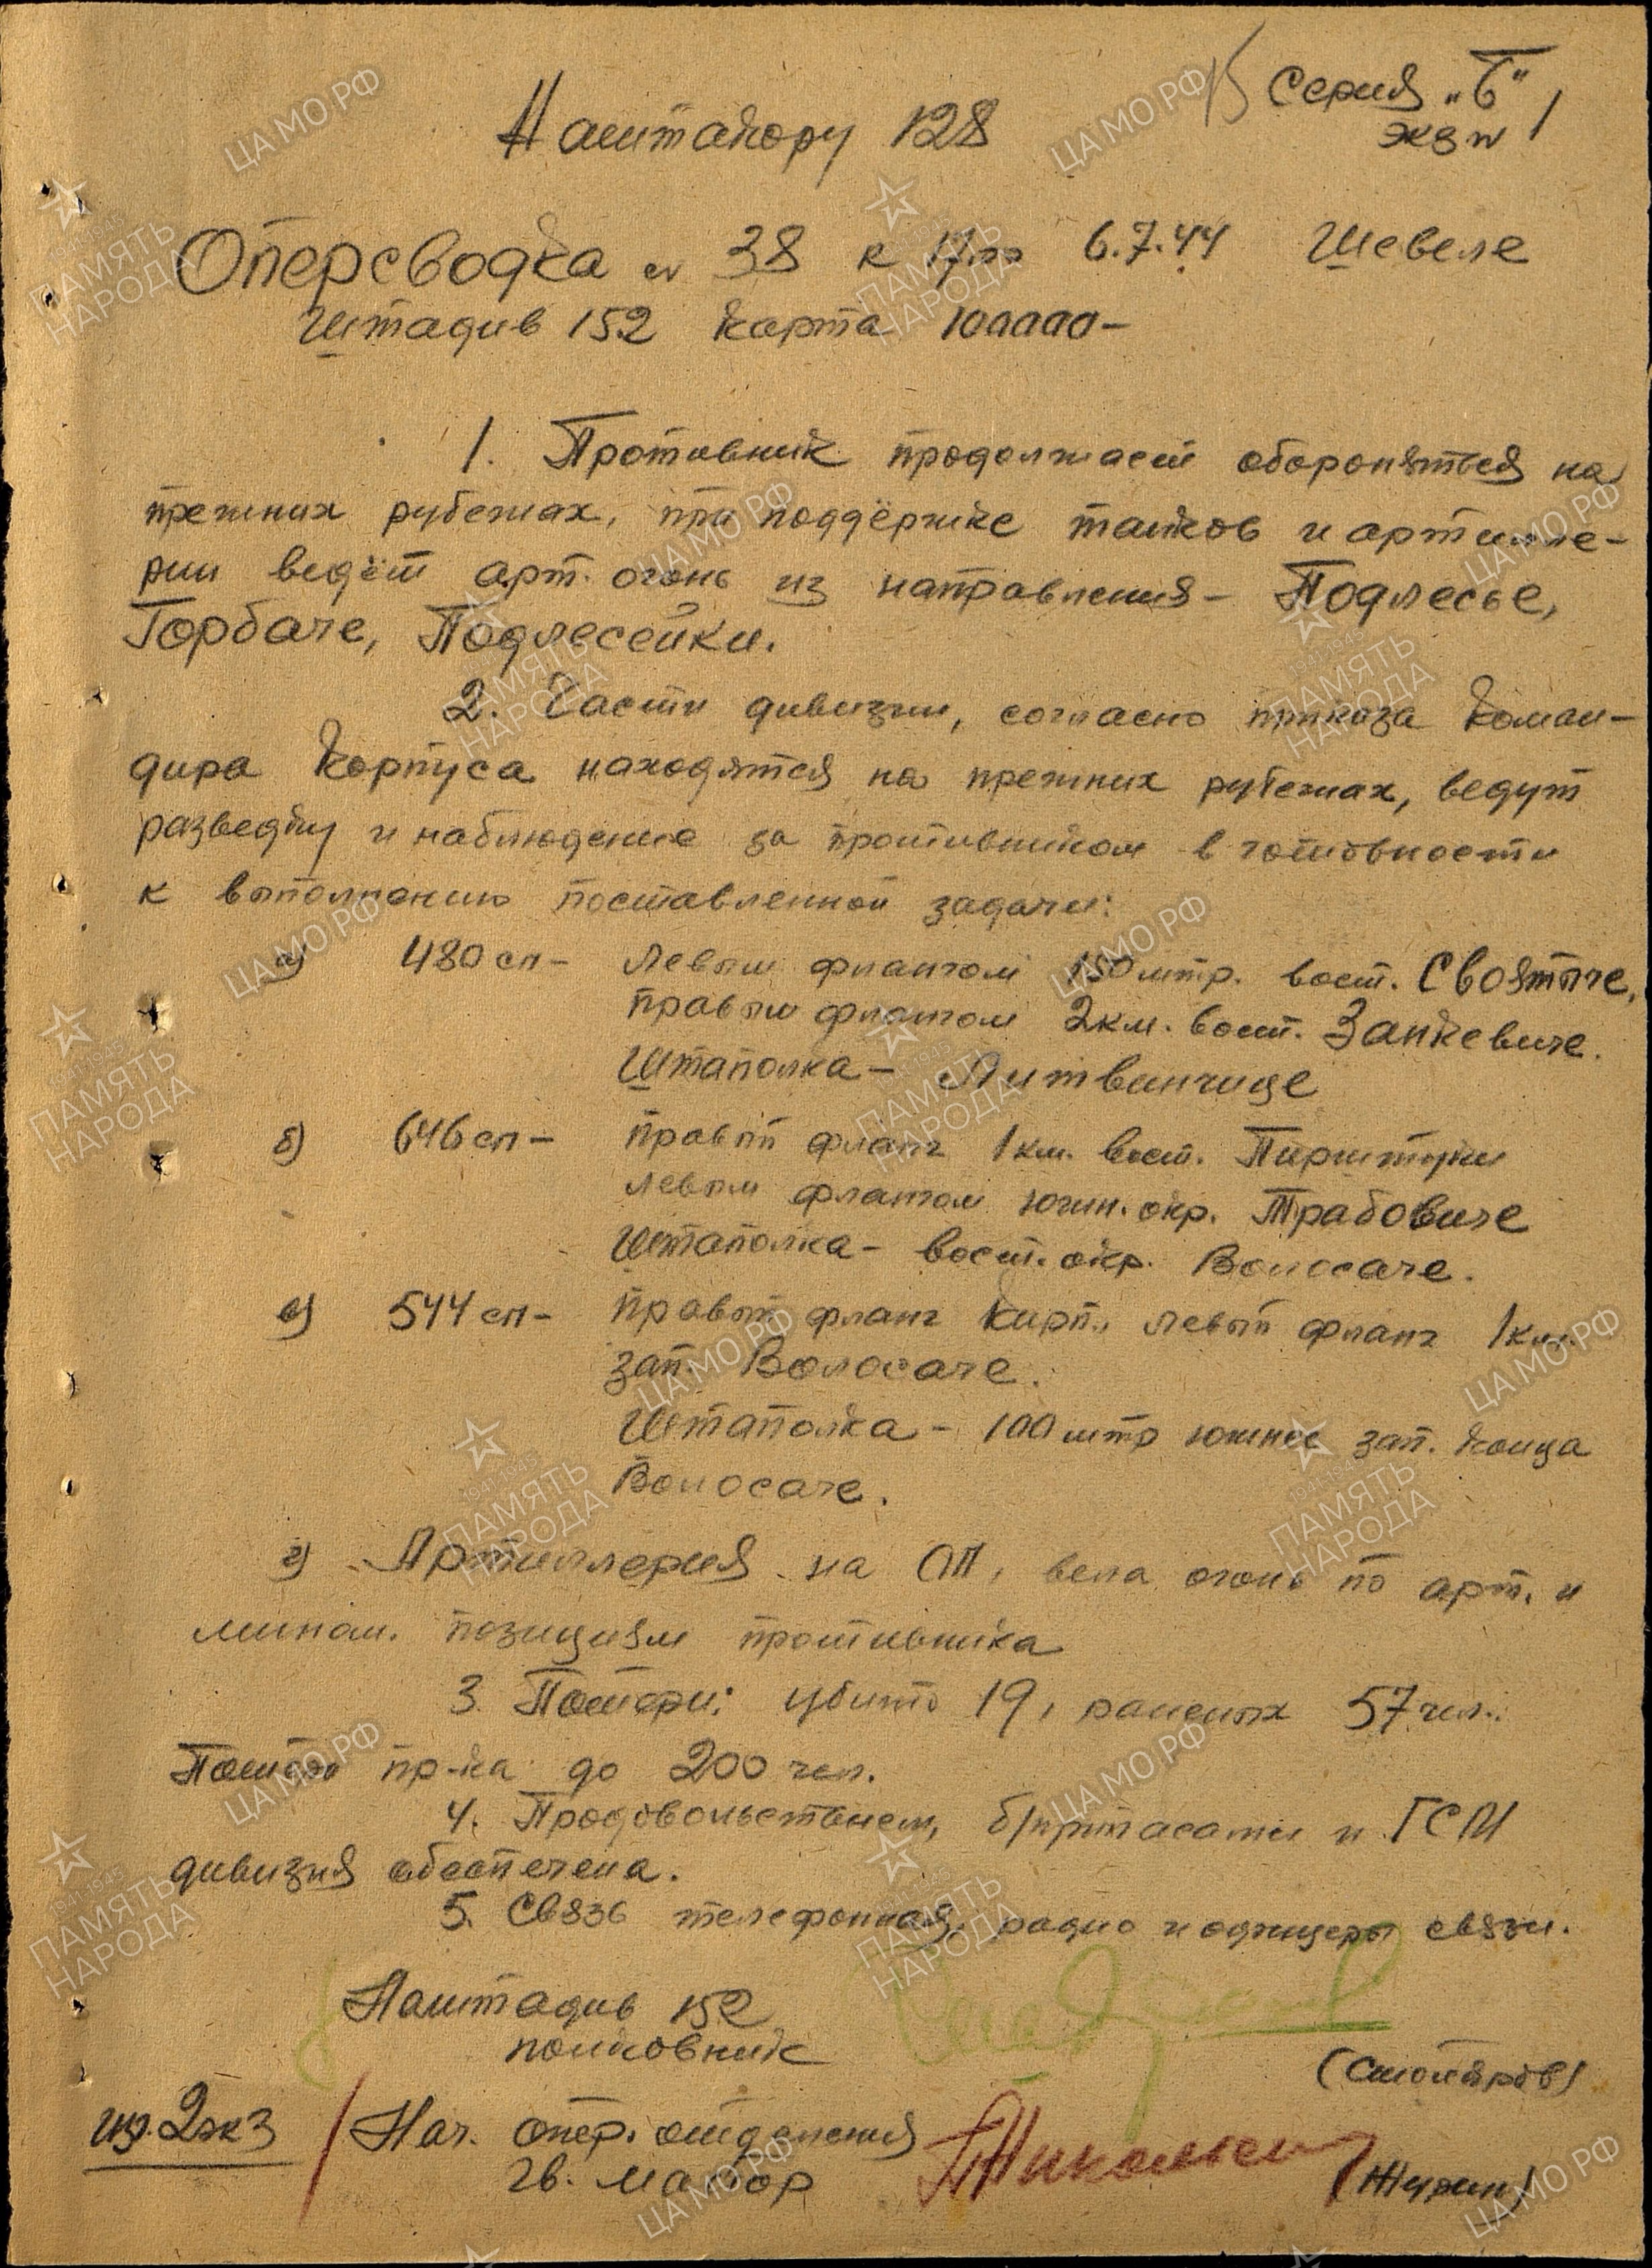 Серия „Б"
экз № 1
Наштакору 128
Оперсводка № 38 к 17.00 6.7.44 Шевеле
Штадив 152 карта 100000-
1. Противник продолжает обороняться на
прежних рубежах, при поддёржке танков и артилле-
рии ведёт арт. огонь из направления - Подлесье,
Горбаче, Подлесейки.
2. Части дивизии, согласно приказа Коман-
дира Корпуса находятся на прежних рубежах, ведут
разведку и наблюдение за противником в готовности
к выполнению поставленной задачи:
а) 480 сп - левым флангом 150 мтр. вост. Своятыче,
правым флангом 2 км. вост. Занкевиче.
Штаполка - Литвинчице
б) 646 сп - правый фланг 1 км. вост.
левым флангом южн. окр. Трабовиче
Штаполка - вост. окр. Волосаче.
в) 544 сп - правый фланг Кирп., левый фланг 1 км.
зап. Волосаче.
Штаполка - 100 мтр южнее зап. конца
Волосаче.
г) Артиллерия на ОП, вела огонь по арт. и
мином. позициям противника
3 Потери: убито 19, раненых 57 чел.
Потери пр-ка до 200 чел.
4. Продовольствием, б/припасами и ГСМ
дивизия обеспечена.
5. Связь телефонная, радио и офицеры связи.
Наштадив 152
полковник
(Столяров)
из. 2экз
Нач. опер. отделения
гв. майор
(Журин)
ЦАМО РФ
ПАМЯТЬ
НАРОДА
1941-1945